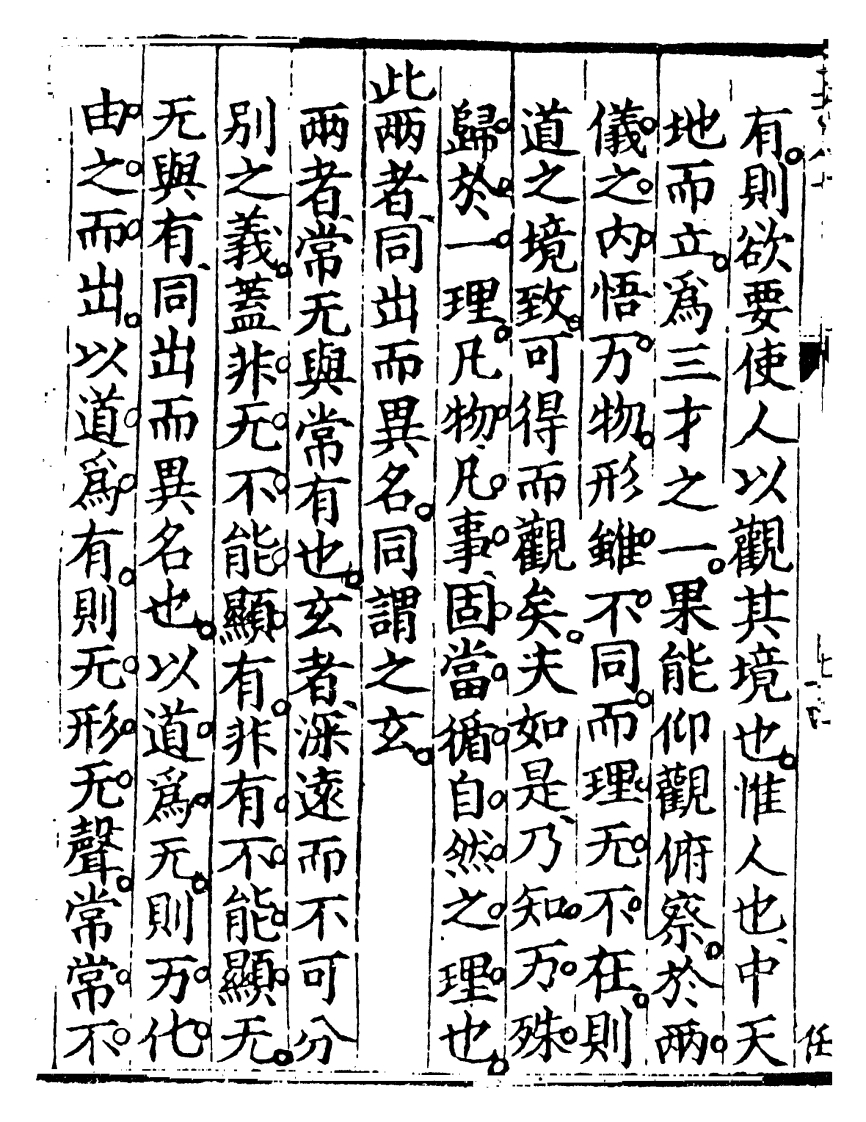 有。則欲要使人以觀其境也。惟人也、中天
地而立。爲三才之一。果能仰觀俯察。於兩
儀之内悟万物。形雖不同。而理无不在。則
道之境致。可得而觀矣。夫如是、乃知万殊
歸於一理。凡物凡事、固當循自然之理也。
此兩者、同出而異名。同謂之玄。
兩者、常无與常有也。玄者、深遠而不可分
別之義。蓋非无不能顯有。非有不能顯无。
无與有、同出而異名也。以道爲无。則万化
由之而出。以道爲有。則无形无聲。常常不
任